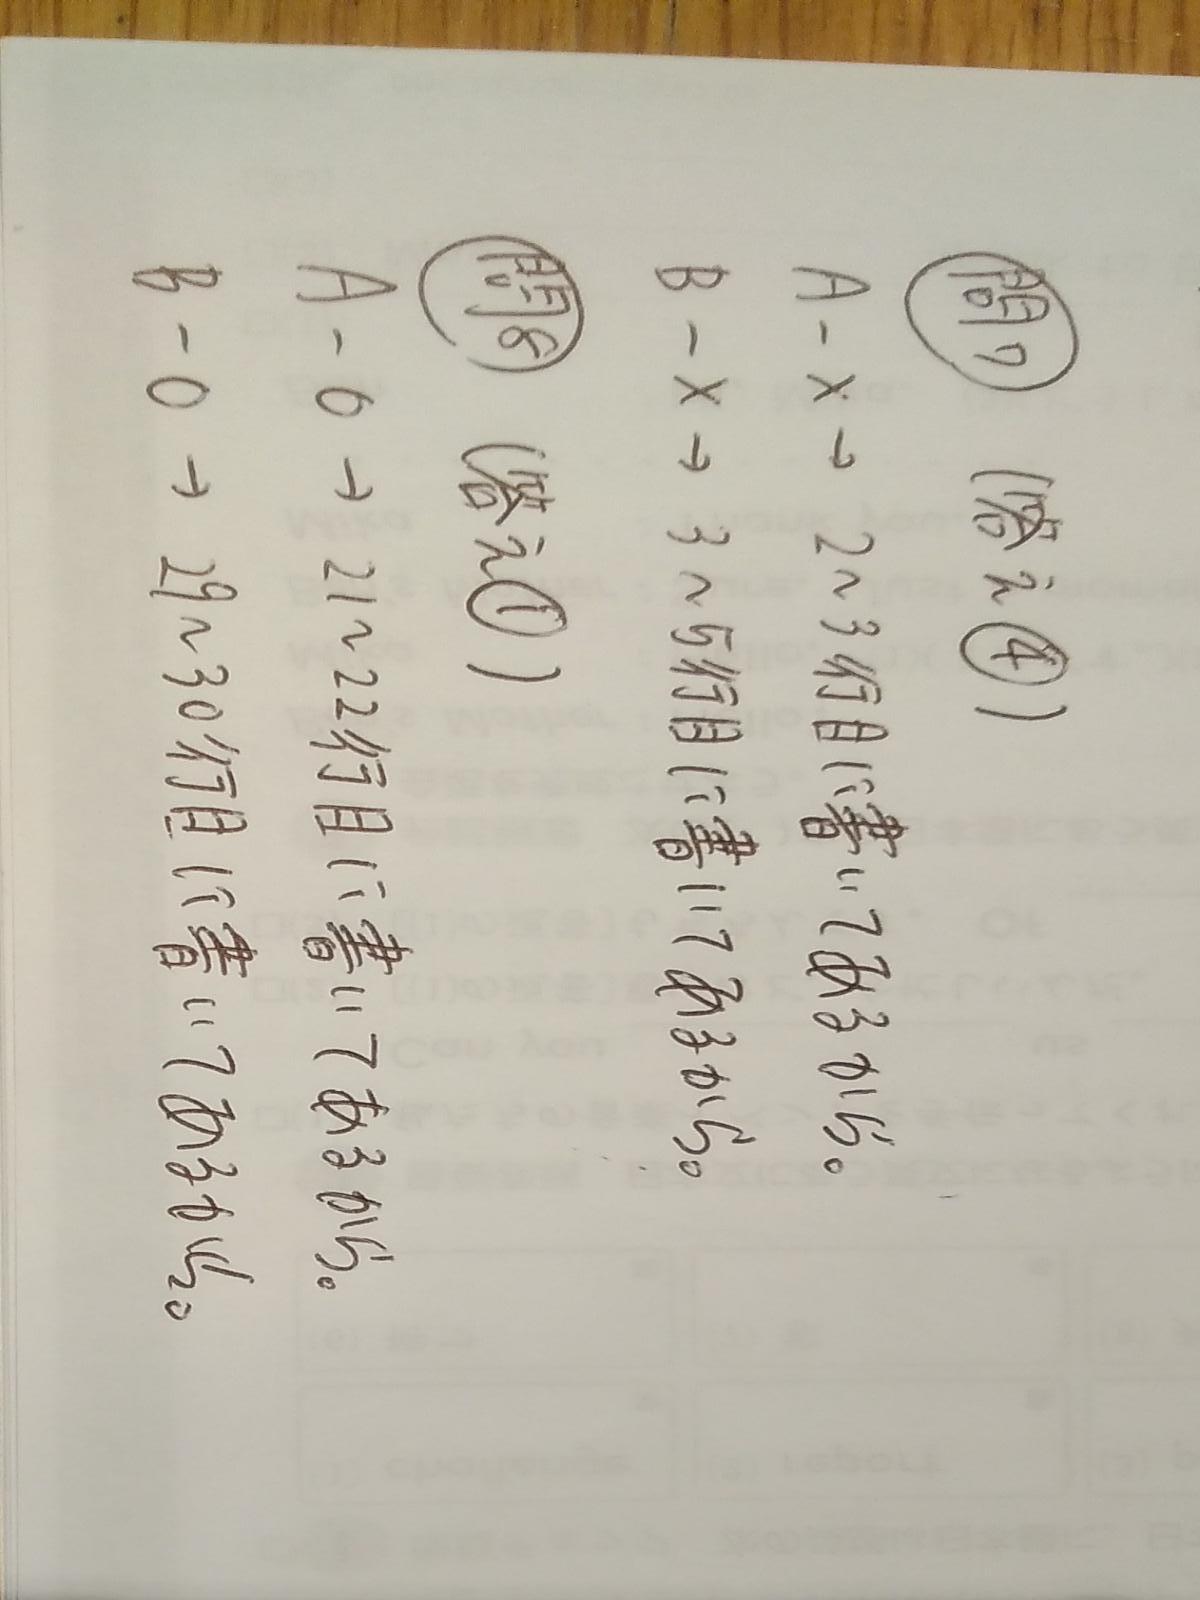 問7 (答え④)
A-×→2〜3行目に書いてあるから。
B-×→3〜5行目に書いてあるから。
問8 (答え①)
A-○→21〜22行目に書いてあるから。
B-○→29〜30行目に書いてあるから。